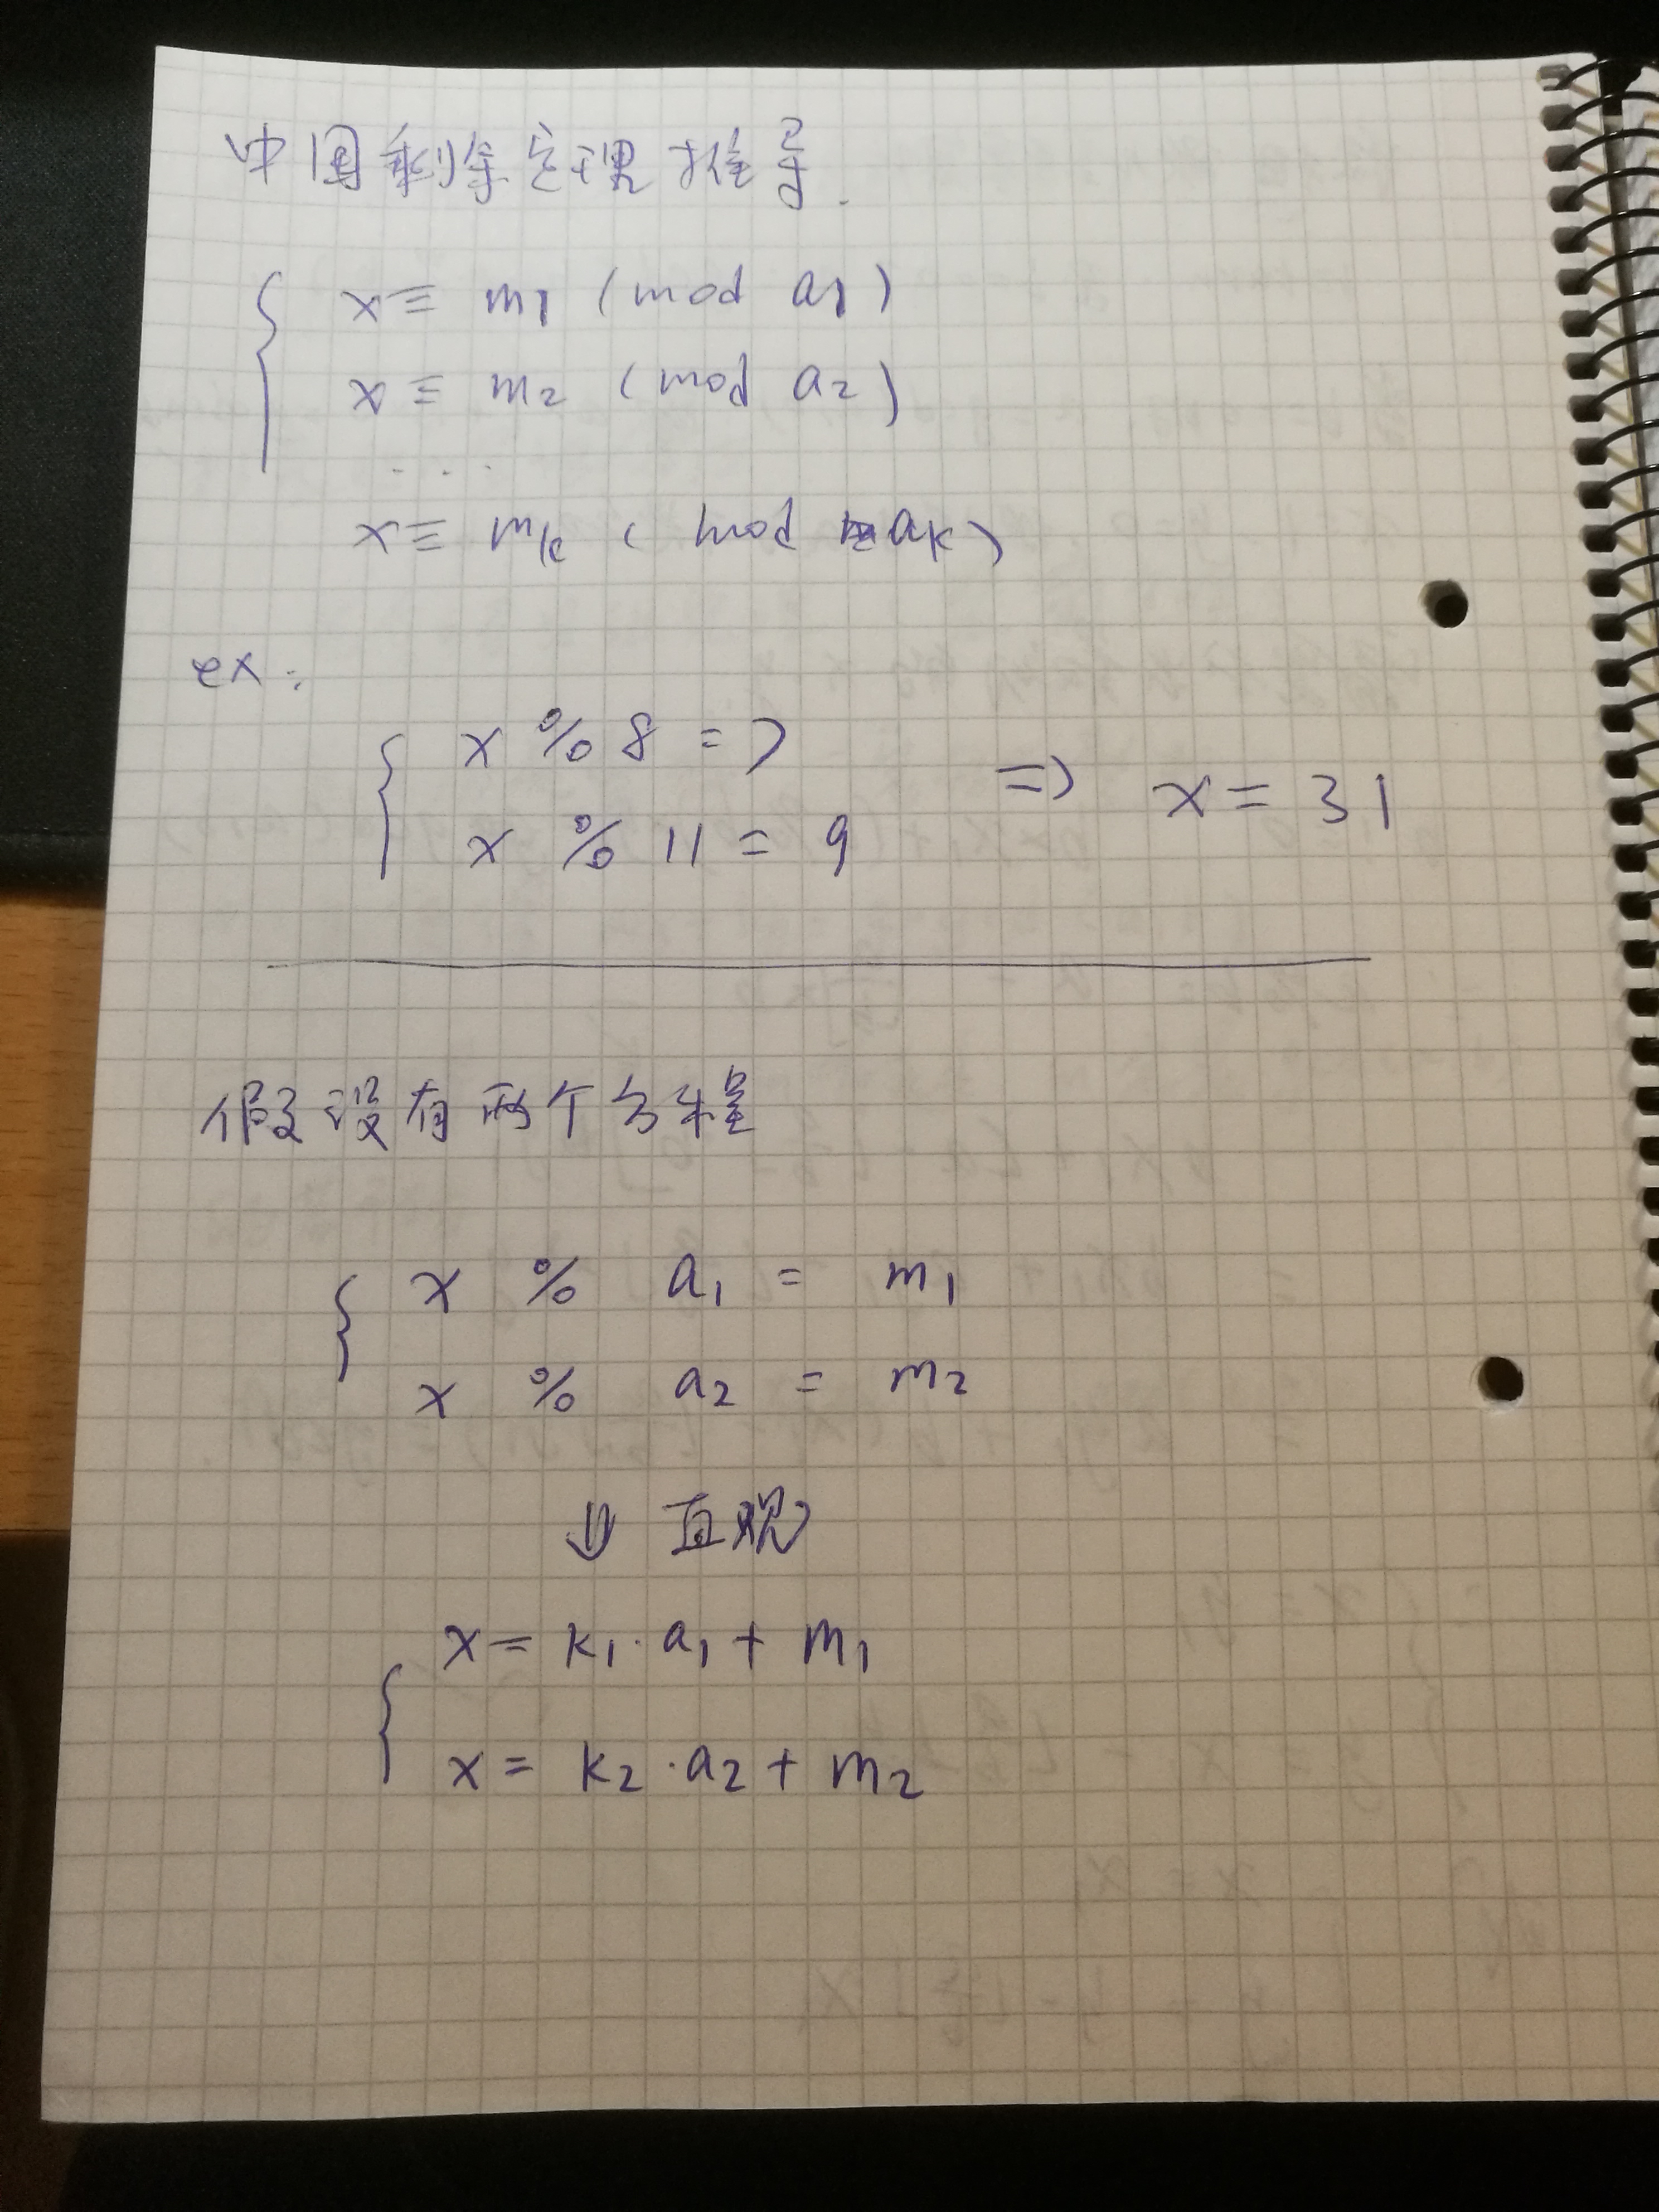 中国剩余定理推导.
x ≡ m1 (mod a1)
x ≡ m2 (mod a2)
...
x ≡ mk (mod ak)
ex:
x % 8 = 7
x % 11 = 9 => x = 31
假设有两个方程
x % a1 = m1
x % a2 = m2
⇓ 直观
x = k1·a1 + m1
x = k2·a2 + m2